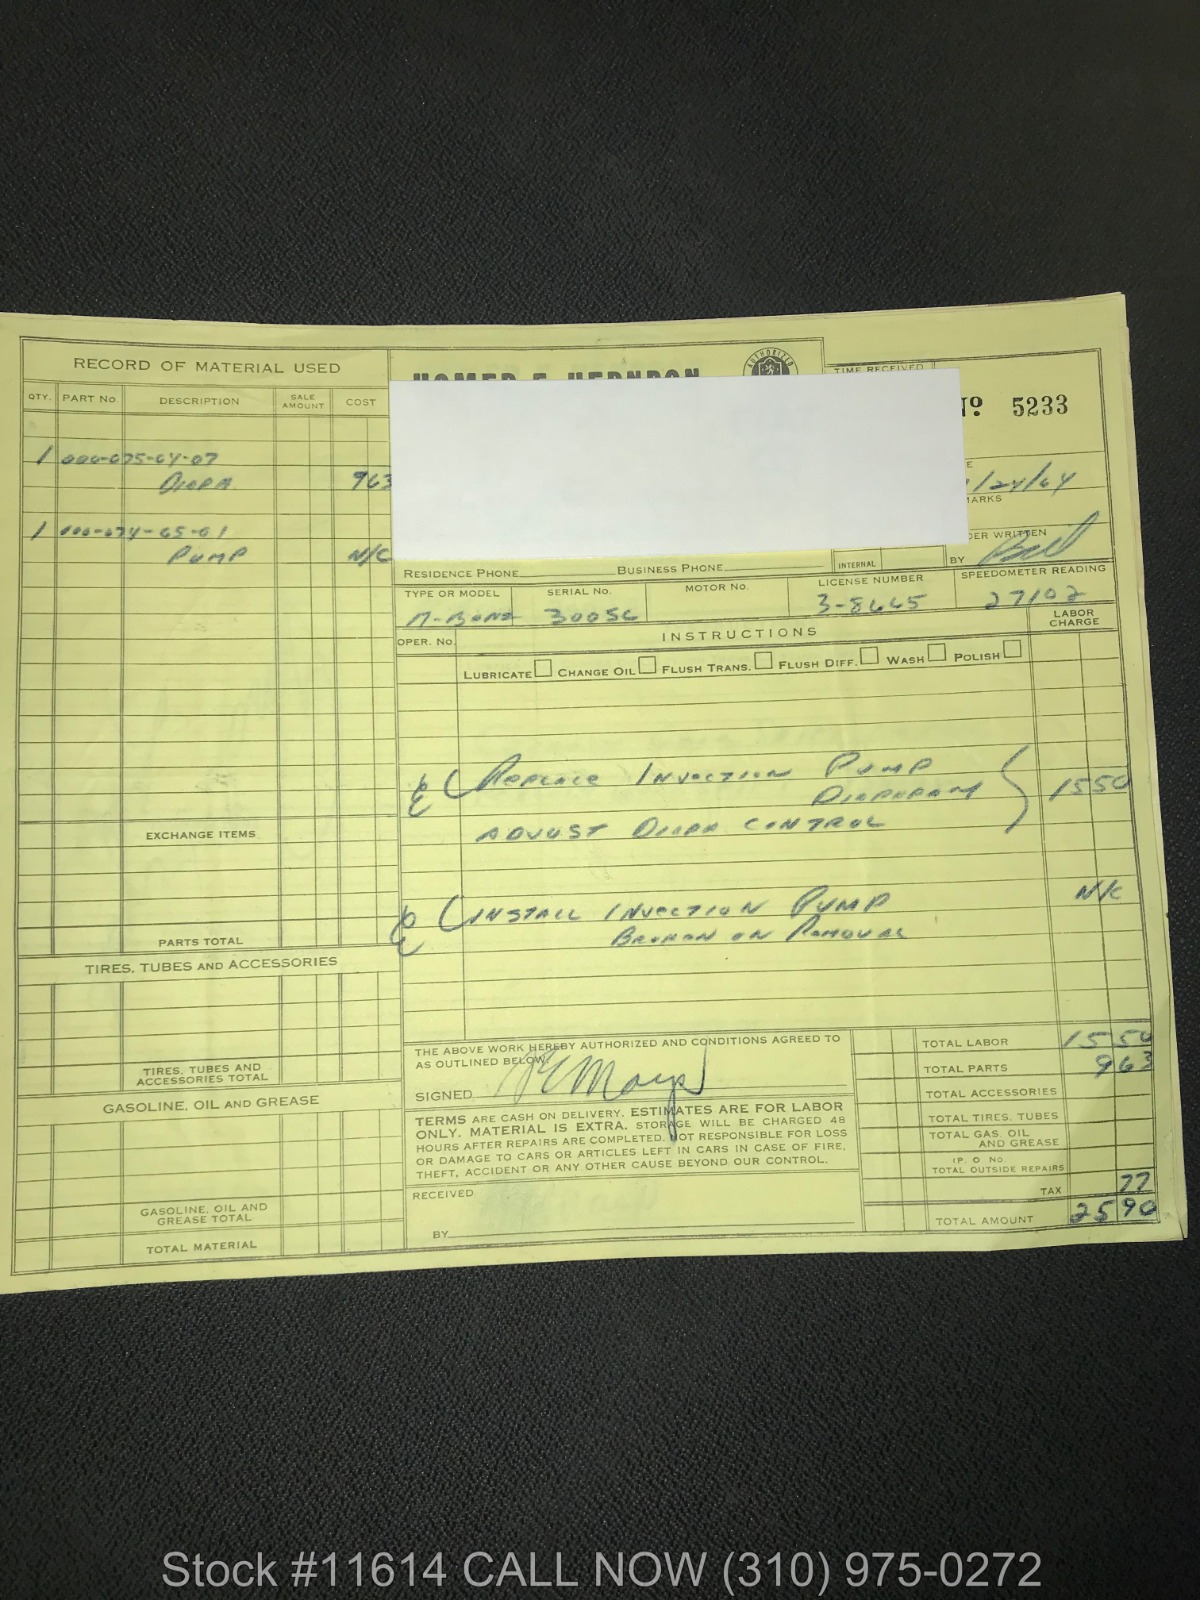 RECORD OF MATERIAL USED
QTY. PART No. DESCRIPTION SALE AMOUNT COST
1 000-075-04-07
DIAPH 963
1 000-074-65-01
PUMP N/C
EXCHANGE ITEMS
PARTS TOTAL
TIRES, TUBES AND ACCESSORIES
TIRES, TUBES AND
ACCESSORIES TOTAL
GASOLINE, OIL AND GREASE
GASOLINE, OIL AND
GREASE TOTAL
TOTAL MATERIAL
AUTHORIZED
TIME RECEIVED
No 5233
/24/64
INTERNAL
WRITTEN
BY Bill
RESIDENCE PHONE BUSINESS PHONE
TYPE OR MODEL SERIAL No. MOTOR No. LICENSE NUMBER SPEEDOMETER READING
M-BENZ 30056 3-8665 27102
OPER. No. INSTRUCTIONS LABOR CHARGE
LUBRICATE CHANGE OIL FLUSH TRANS. FLUSH DIFF. WASH POLISH
REPLACE INJECTION PUMP
DIAPHRAM 1550
ADJUST DIAPH CONTROL
INSTALL INJECTION PUMP N/C
BROKEN ON REMOVAL
THE ABOVE WORK HEREBY AUTHORIZED AND CONDITIONS AGREED TO
AS OUTLINED BELOW.
SIGNED
TERMS ARE CASH ON DELIVERY. ESTIMATES ARE FOR LABOR
ONLY. MATERIAL IS EXTRA. STORAGE WILL BE CHARGED 48
HOURS AFTER REPAIRS ARE COMPLETED. NOT RESPONSIBLE FOR LOSS
OR DAMAGE TO CARS OR ARTICLES LEFT IN CARS IN CASE OF FIRE,
THEFT, ACCIDENT OR ANY OTHER CAUSE BEYOND OUR CONTROL.
RECEIVED
BY
TOTAL LABOR 1550
TOTAL PARTS 963
TOTAL ACCESSORIES
TOTAL TIRES, TUBES
TOTAL GAS, OIL
AND GREASE
P. O. No.
TOTAL OUTSIDE REPAIRS
TAX 77
TOTAL AMOUNT 2590
Stock #11614 CALL NOW (310) 975-0272